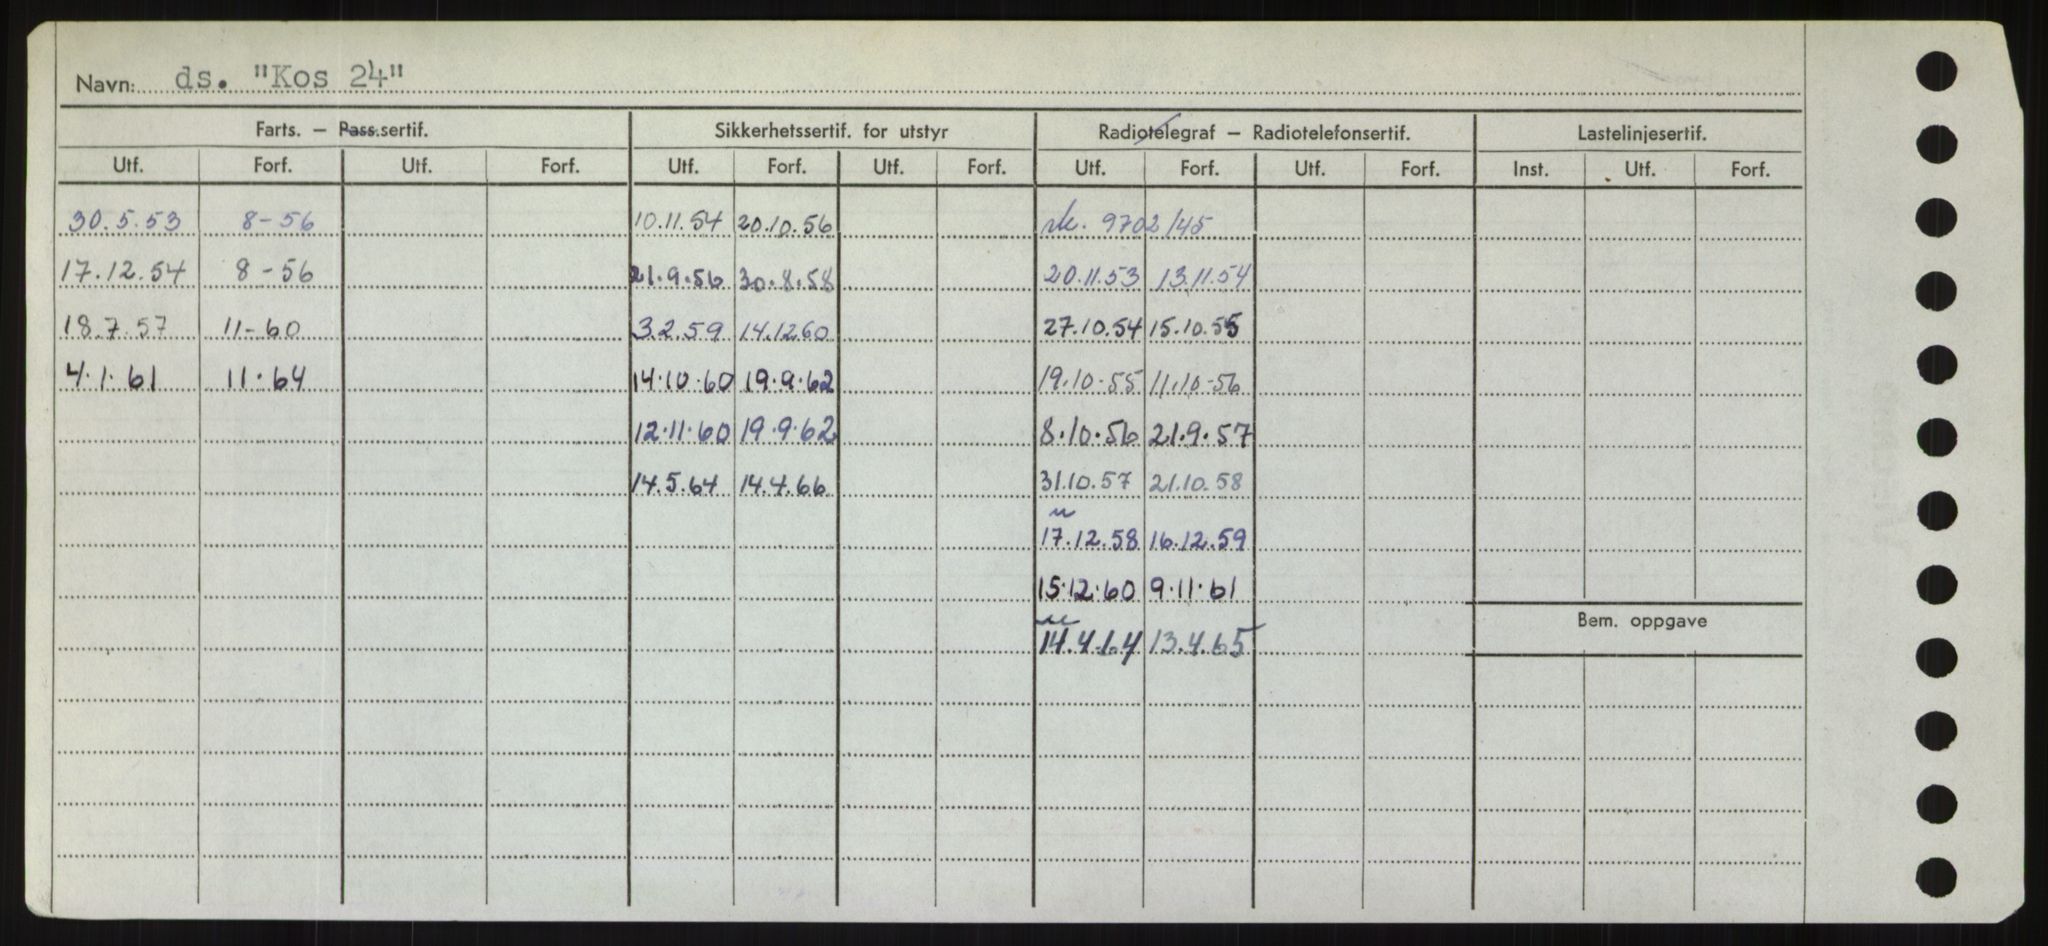 Navn: ds. "Kos 24"
Farts. – Pass.sertif. Sikkerhetssertif. for utstyr Radiotelegraf – Radiotelefonsertif. Lastelinjesertif.
Utf. Forf. Utf. Forf. Utf. Forf. Utf. Forf. Utf. Forf. Utf. Forf. Inst. Utf. Forf.
30.5.53 8-56 10.11.54 20.10.56 9702/45
17.12.54 8-56 21.9.56 30.8.58 20.11.53 13.11.54
18.7.57 11-60 3.2.59 14.12.60 27.10.54 15.10.55
4.1.61 11.64 14.10.60 19.9.62 19.10-55 11.10-56
12.11.60 19.9.62 8.10.56 21.9.57
14.5.64 14.4.66 31.10.57 21.10.58
17.12.58 16.12.59
15.12.60 9.11.61
Bem. oppgave
14.4.64 13.4.65